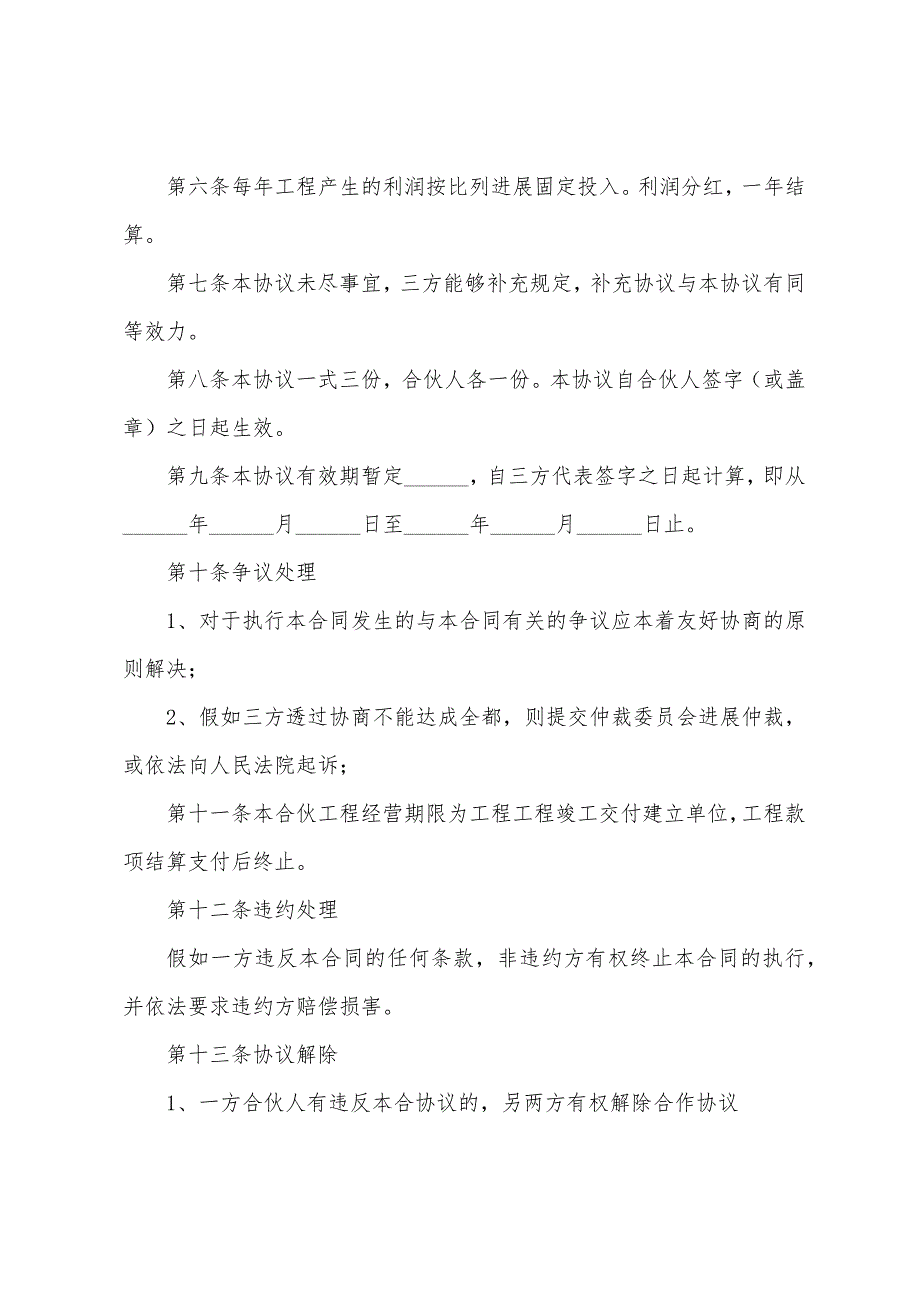 第六条每年工程产生的利润按比列进展固定投入。利润分红，一年结
算。
第七条本协议未尽事宜，三方能够补充规定，补充协议与本协议有同
等效力。
第八条本协议一式三份，合伙人各一份。本协议自合伙人签字（或盖
章）之日起生效。
第九条本协议有效期暂定______，自三方代表签字之日起计算，即从
______年______月______日至______年______月______日止。
第十条争议处理
1、对于执行本合同发生的与本合同有关的争议应本着友好协商的原
则解决；
2、假如三方透过协商不能达成全都，则提交仲裁委员会进展仲裁，
或依法向人民法院起诉；
第十一条本合伙工程经营期限为工程工程竣工交付建立单位，工程款
项结算支付后终止。
第十二条违约处理
假如一方违反本合同的任何条款，非违约方有权终止本合同的执行，
并依法要求违约方赔偿损害。
第十三条协议解除
1、一方合伙人有违反本合协议的，另两方有权解除合作协议